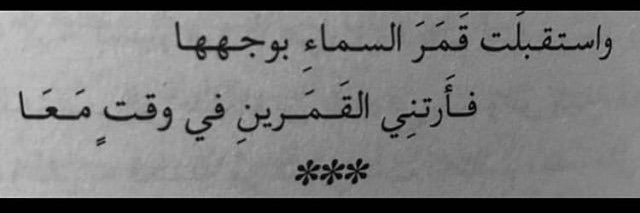 واستقبلَت قَمَرَ السماءِ بوجهها
فأَرتنِي القَمَرينِ في وقتٍ مَعَا
***